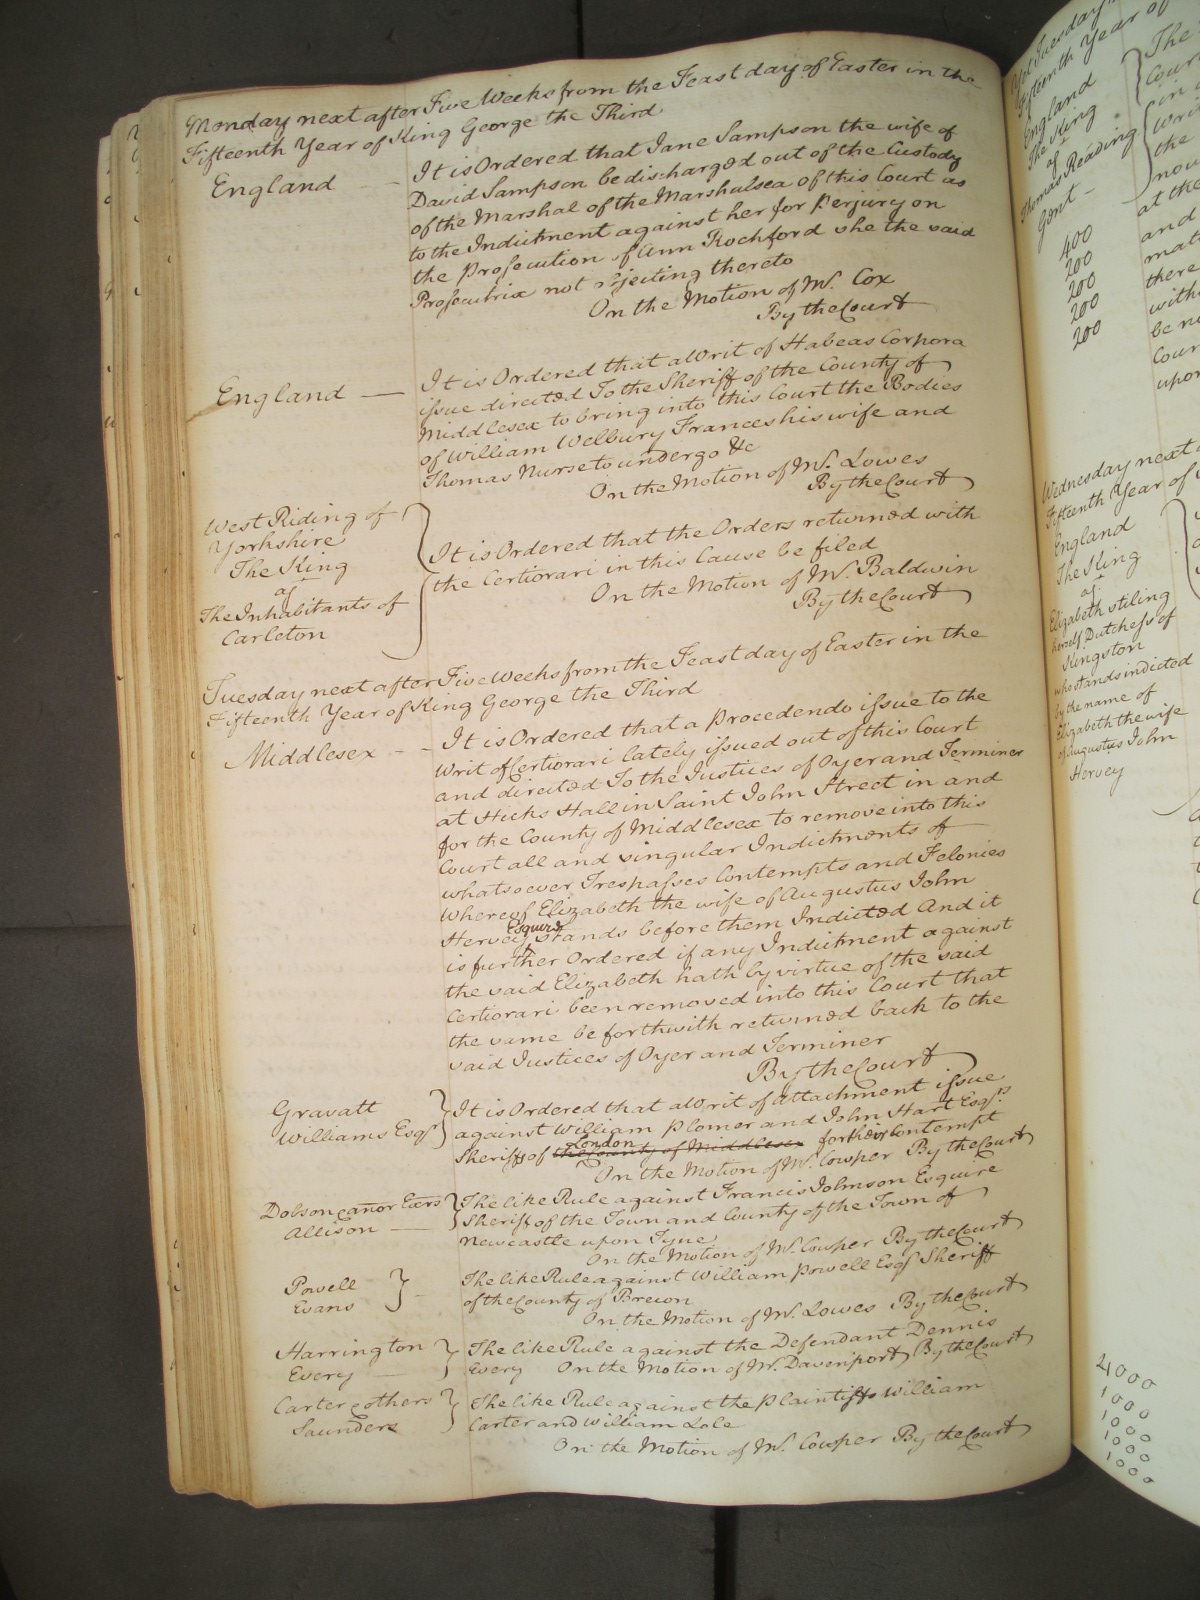 Monday next after Five Weeks from the Feast day of Easter in the
Fifteenth Year of King George the Third
England — It is Ordered that Jane Sampson the wife of
David Sampson be discharged out of the Custody
of the Marshal of the Marshalsea of this Court as
to the Indictment against her for Perjury on
the Prosecution of Ann Rochford she the said
Prosecutrix not objecting thereto
On the Motion of Mr. Cox
By the Court
England — It is Ordered that a Writ of Habeas Corpora
issue directed To the Sheriff of the County of
Middlesex to bring into this Court the Bodies
of William Welbury Frances his wife and
Thomas Nurse to undergo &c
On the Motion of Mr. Lowes
By the Court
West Riding of
Yorkshire
The King
agt
The Inhabitants of
Carleton
It is Ordered that the Orders returned with
the Certiorari in this Cause be filed
On the Motion of Mr. Baldwin
By the Court
Tuesday next after Five Weeks from the Feast day of Easter in the
Fifteenth Year of King George the Third
Middlesex — It is Ordered that a Procedendo issue to the
Writ of Certiorari lately issued out of this Court
and directed To the Justices of Oyer and Terminer
at Hicks Hall in Saint John Street in and
for the County of Middlesex to remove into this
Court all and singular Indictments of
whatsoever Trespasses Contempts and Felonies
whereof Elizabeth the wife of Augustus John
Hervey Esquire stands before them Indicted And it
is further Ordered if any Indictment against
the said Elizabeth hath by virtue of the said
Certiorari been removed into this Court that
the same be forthwith returned back to the
said Justices of Oyer and Terminer
By the Court
Gravatt
Williams Esqr
It is Ordered that a Writ of Attachment issue
against William Plomer and John Hart Esqrs
Sheriffs of the County of Middlesex London for their Contempt
On the Motion of Mr. Cowper By the Court
Dobson & anor Exrs
Allison —
The like Rule against Francis Johnson Esquire
Sheriff of the Town and County of the Town of
Newcastle upon Tyne
On the Motion of Mr. Cowper By the Court
Powell
Evans
The like Rule against William Powell Esqr Sheriff
of the County of Brecon
On the Motion of Mr. Lowes By the Court
Harrington
Every —
The like Rule against the Defendant Dennis
Every On the Motion of Mr. Davenport By the Court
Carter & others
Saunders
The like Rule against the Plaintiffs William
Carter and William Lole
On the Motion of Mr. Cowper By the Court
Tuesday
Fifteenth Year of
England
The King
agt
Thomas Reading
Gent —
400
200
200
200
200
The
Cour
in
Writ
the
nou
at the
and
mat
there
with
be no
Cour
upon
Wednesday next
Fifteenth Year of
England
The King
agt
Elizabeth stiling
herself Dutchess of
Kingston
who stands indicted
by the name of
Elizabeth the wife
of Augustus John
Hervey
4000
1000
1000
1000
1000